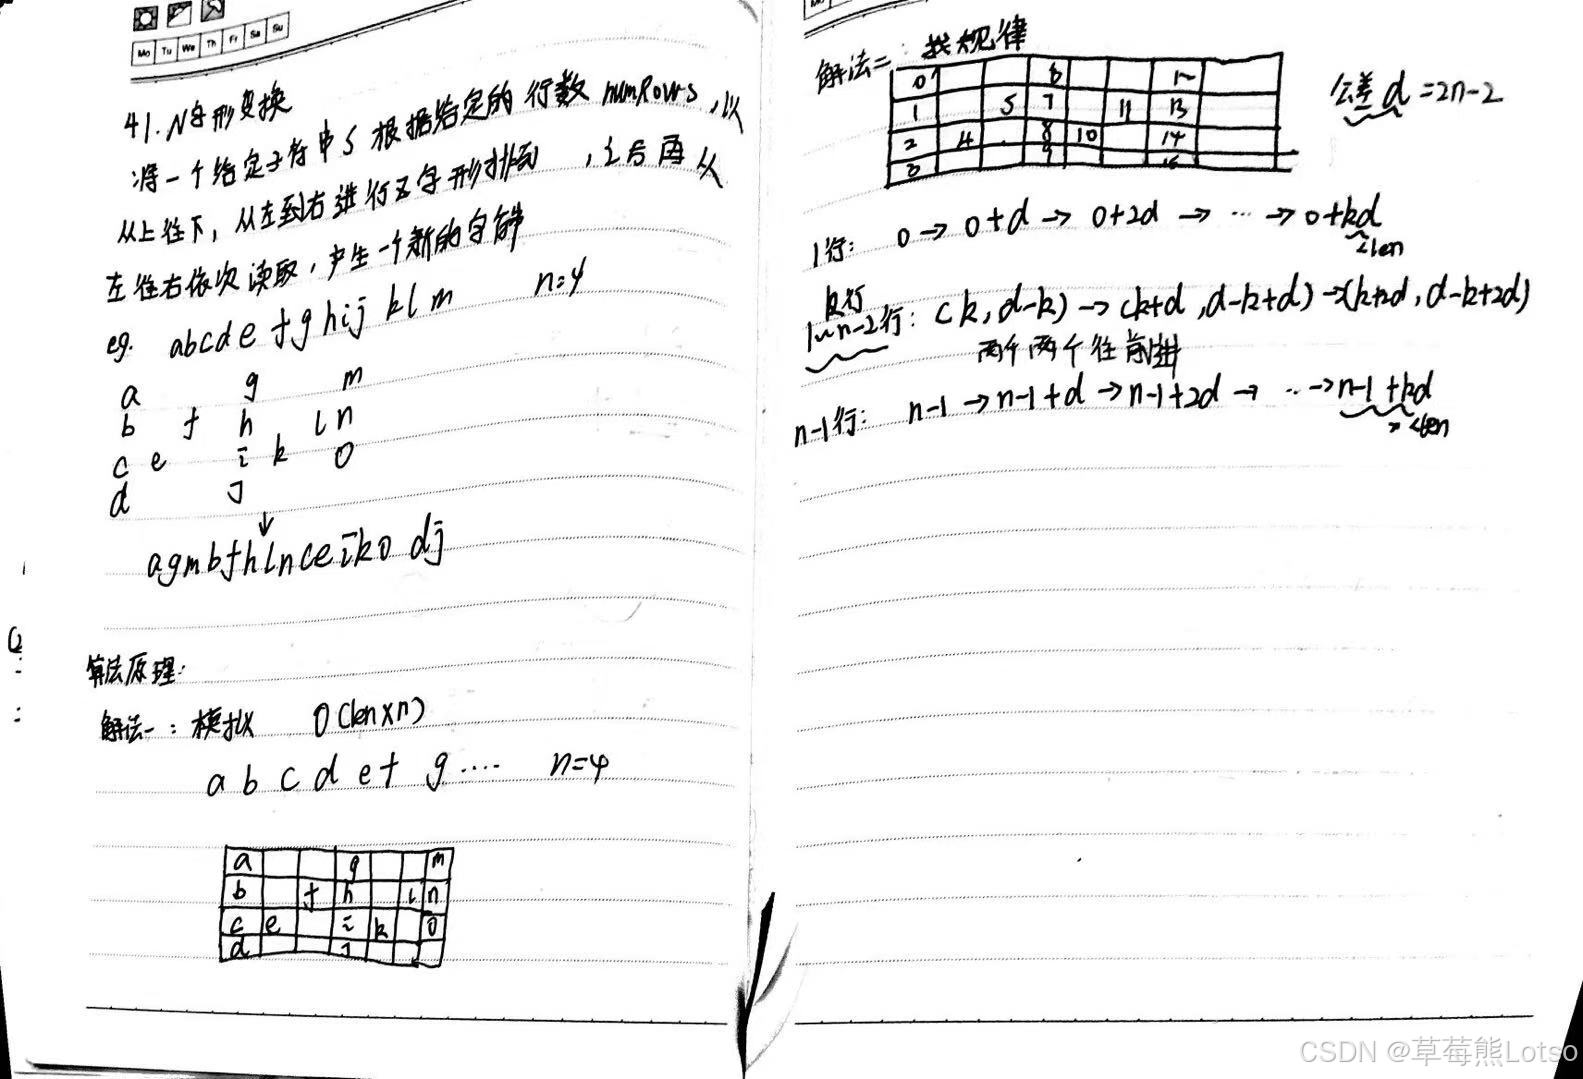 Mo Tu We Th Fr Sa Su
41.N字形变换
将一个给定字符串S根据给定的行数numRows,以
从上往下,从左到右进行Z字形排列,之后再从
左往右依次读取,产生一个新的字符
eg. abcde fghij klm n=4
a g m
b f h l n
c e i k o
d j
↓
agmbfhlnceiko dj
算法原理:
解法一:模拟 O(len×n)
a b c d e f g.... n=4
a g m
b f h l n
c e i k o
d j
解法二:找规律
0 6 12
1 5 7 11 13
2 4 8 10 14
3 9 15
公差d=2n-2
1行: 0→0+d→0+2d→…→0+kd
<len
k行
1~n-2行: (k,d-k)→(k+d,d-k+d)→(k+2d,d-k+2d)
两个两个往前进
n-1行: n-1→n-1+d→n-1+2d→…→n-1+kd
<len
CSDN @草莓熊Lotso